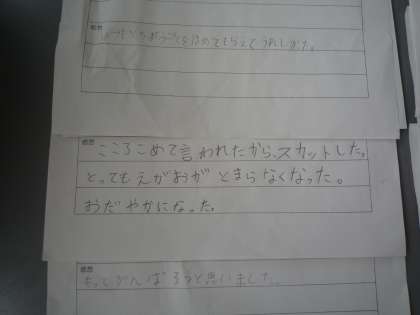 感想
をほめてもらえてうれしかった。
感想
こころこめて言われたから、スカットした。
とってもえがおがとまらなくなった。
おだやかになった。
感想
もっとがんばろうと思いました。